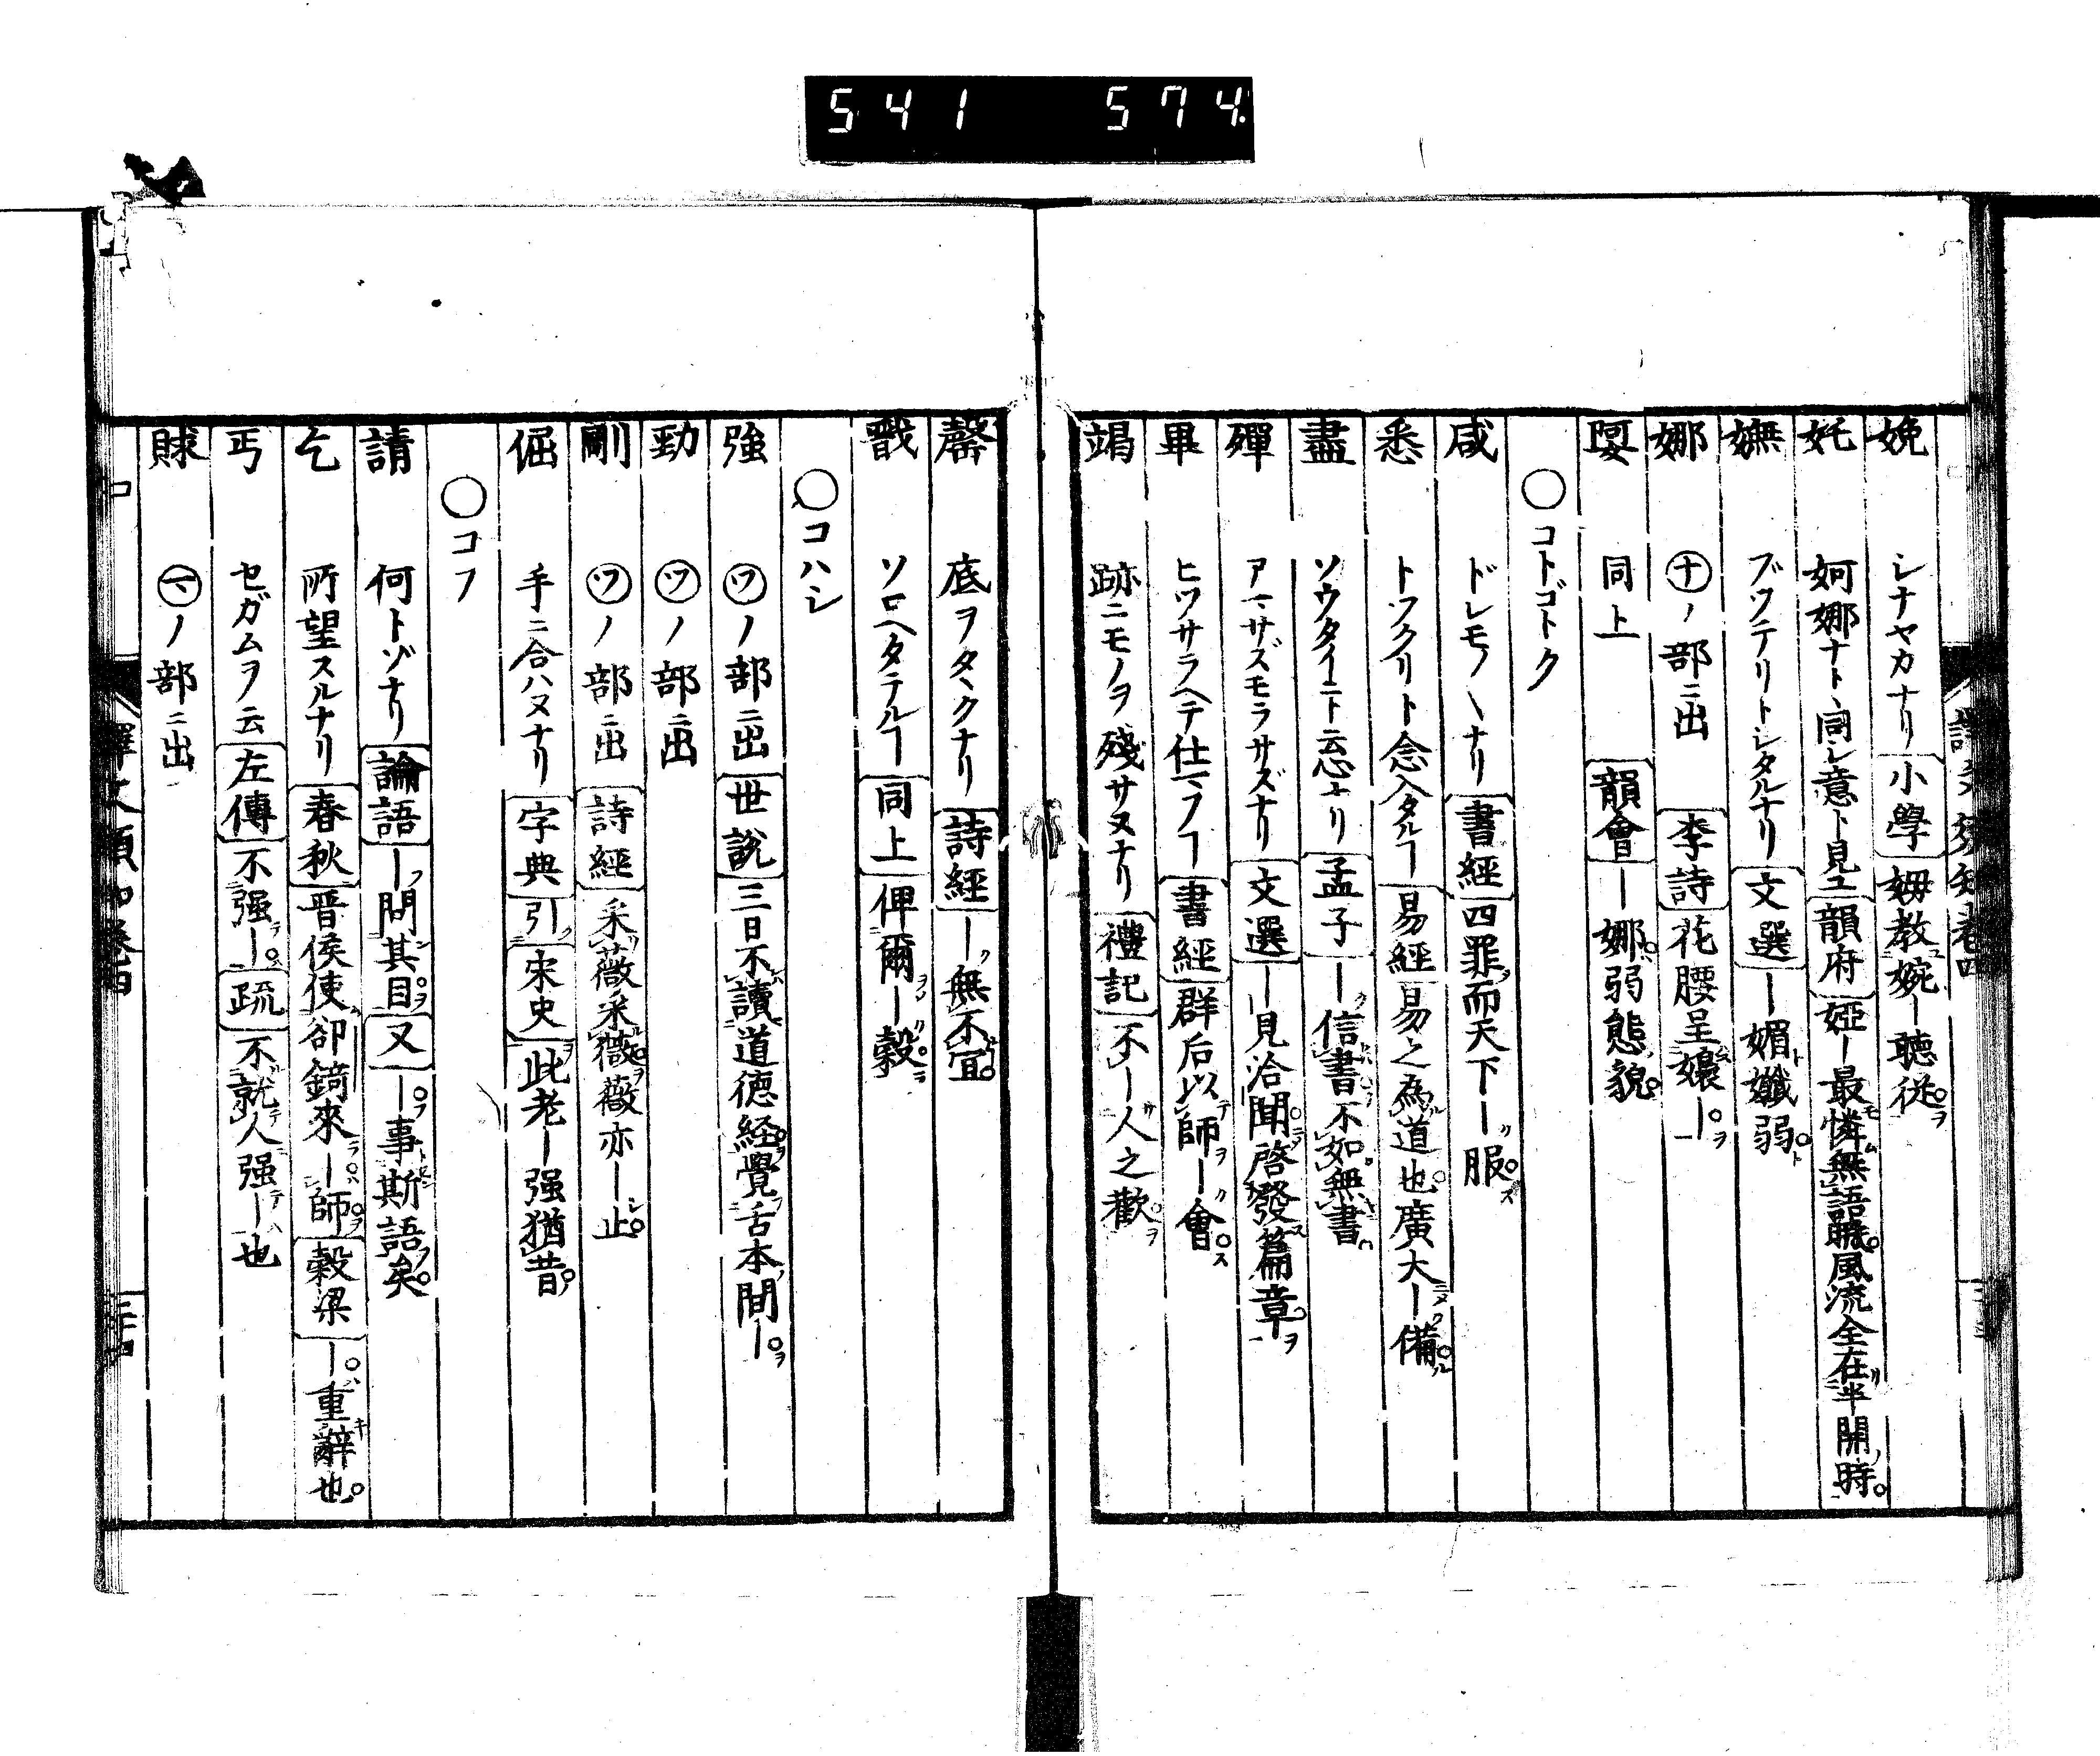 541 574
娩 シナヤカナリ 小學 姆教婉ー聴従
妊 妸娜ナト同シ意ト見ユ 韻府 婭ー最憐無語騰風流全在半開時
嫵 ブツテリトシタルナリ 文選 ー媚孅弱
娜 ㋤ノ部ニ出 李詩 花腰呈嬝ー
同上 韻會 ー娜弱態貌
○コトゴトク
咸 ドレモ〱ナリ 書經 四罪而天下ー服
悉 トツクリト念入タルヿ 易經 易之為道也廣大ー備
盡 ソウタイニト云忍ナリ 孟子 ー信書不如無書
殫 アマサズモラサズナリ 文選 ー見洽聞啓發篇章
畢 ヒツサラヘテ仕マフヿ 書經 群后以師ー會
竭 跡ニモノヲ殘サヌナリ 禮記 不ー人之歡
罄 底ヲタヽクナリ 詩經 ー無不宜
戩 ソロヘタテルヿ 同上 俾爾ー穀
○コハシ
強 ㋡ノ部ニ出 世説 三日不讀道德経覺舌本間ー
勁 ㋡ノ部ニ出
剛 ㋡ノ部ニ出 詩經 采薇采薇薇亦ー止
倔 手ニ合ハヌナリ 字典 引 宋史 此老ー强猶昔
○コフ
請 何トゾナリ 論語 ー問其目 又 ー事斯語矣
乞 所望スルナリ 春秋 晋侯使郤錡來ー師 穀梁 ー重辭也
丐 セガムヲ云 左傳 不强ー 疏 不就人强ー也
賕 ㋮ノ部ニ出